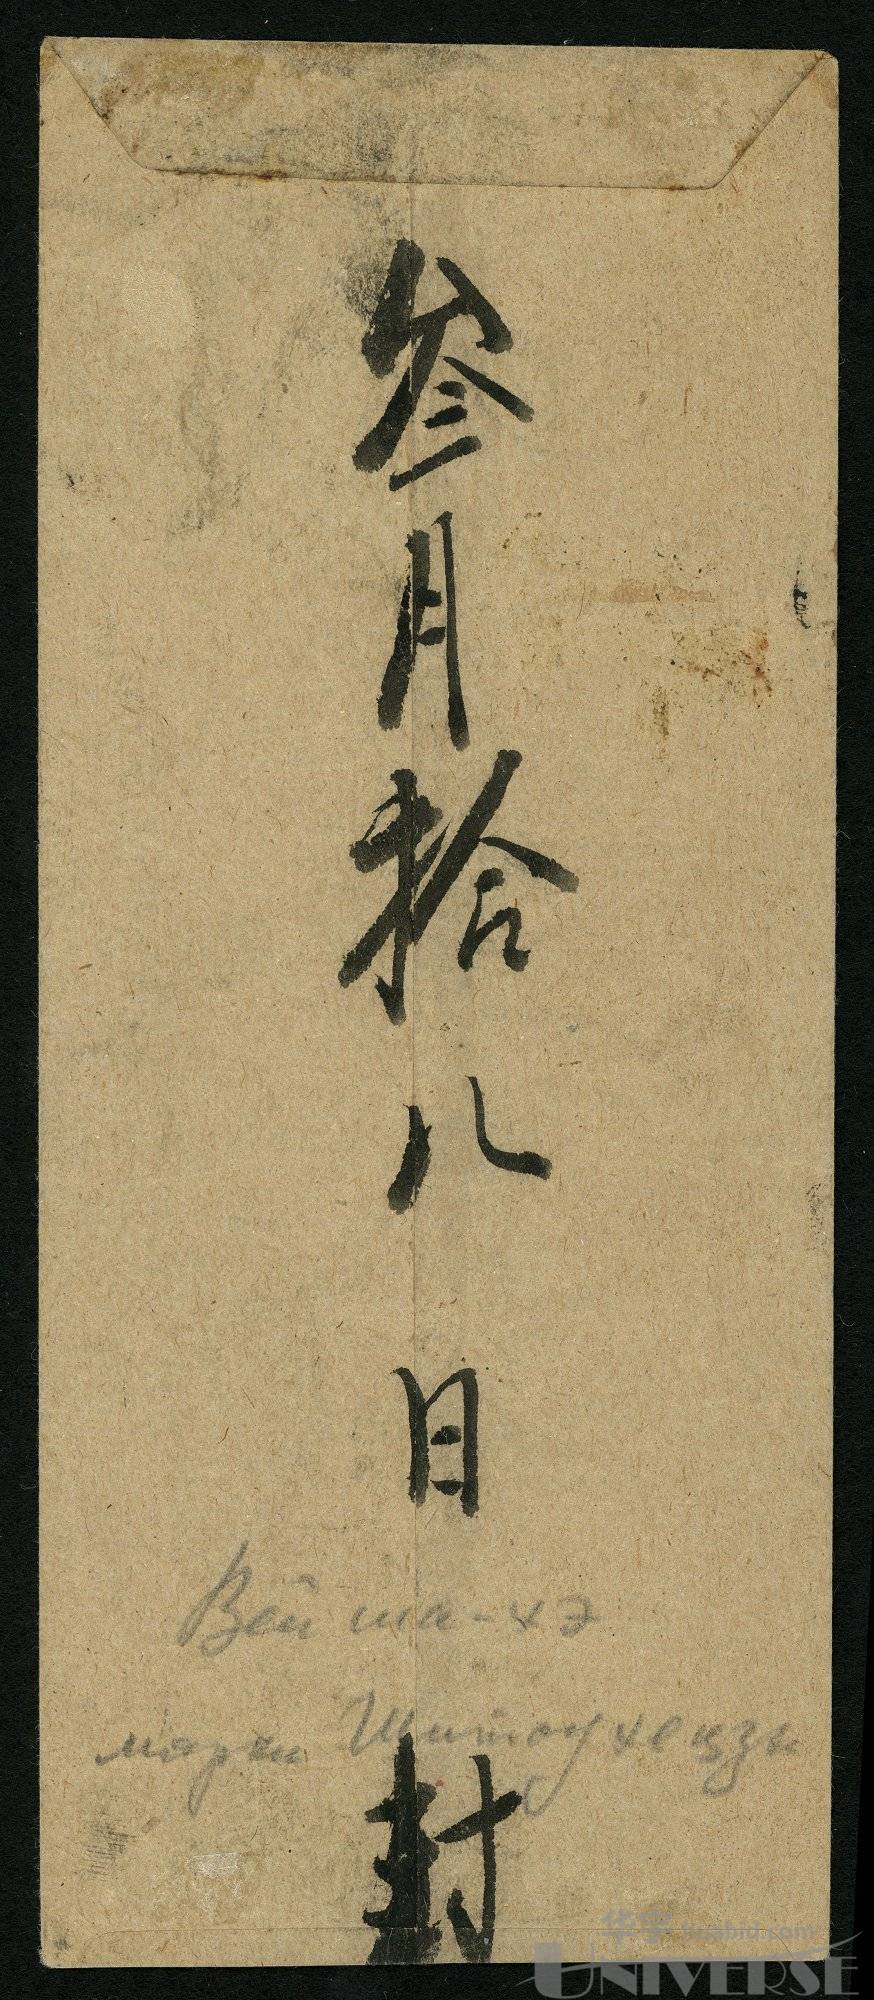 叁月拾八日封
Вейша-хэ
марки Шитоухецзы
华宇 huabid.com
UNIVERSE